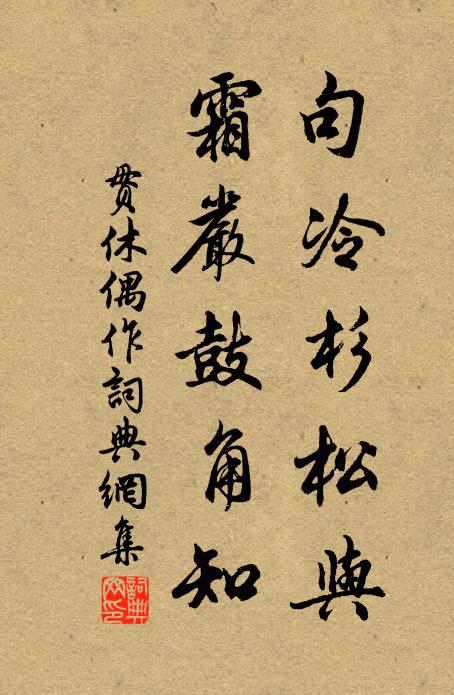 句冷杉松與
霜嚴鼓角知
貫休偶作詞典網集
詞典
网印